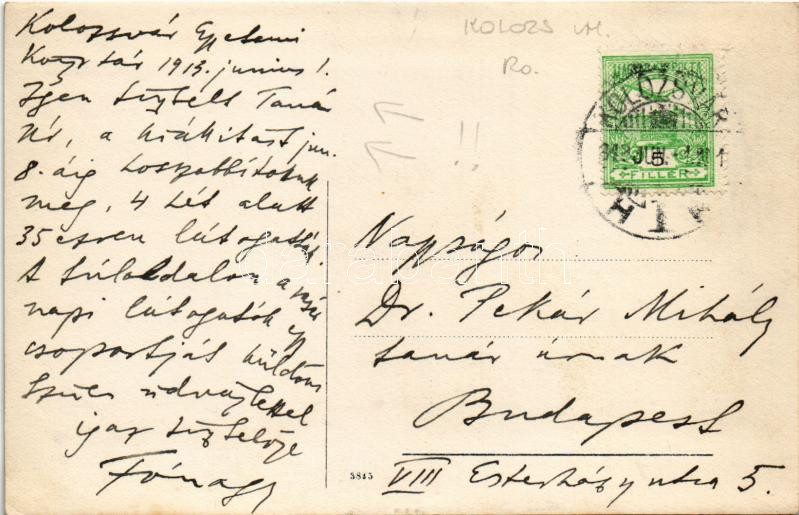 Kolozsvár Egyetemi
Könyvtár 1913. junius 1.
Igen tisztelt Tanár
Úr, a kiállitást jun.
8.-áig hosszabbitottuk
meg, 4 hét alatt
35 ezren látogatták.
A túloldalon a vasár
napi látogatók egy
csoportját küldöm
Szives üdvözlettel
igaz tisztelője
Fónagy
KOLOZS
Ro.
!!
KOLOZSVÁR
913 JUN.
5
FILLER
Nagyságos
Dr. Pekár Mihály
tanár úrnak
Budapest
VIII Esterházy utca 5.
5815
darabanth